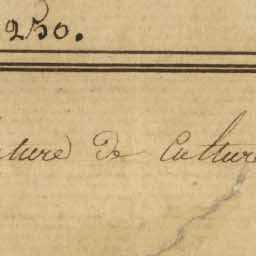 250.
ture de Culture